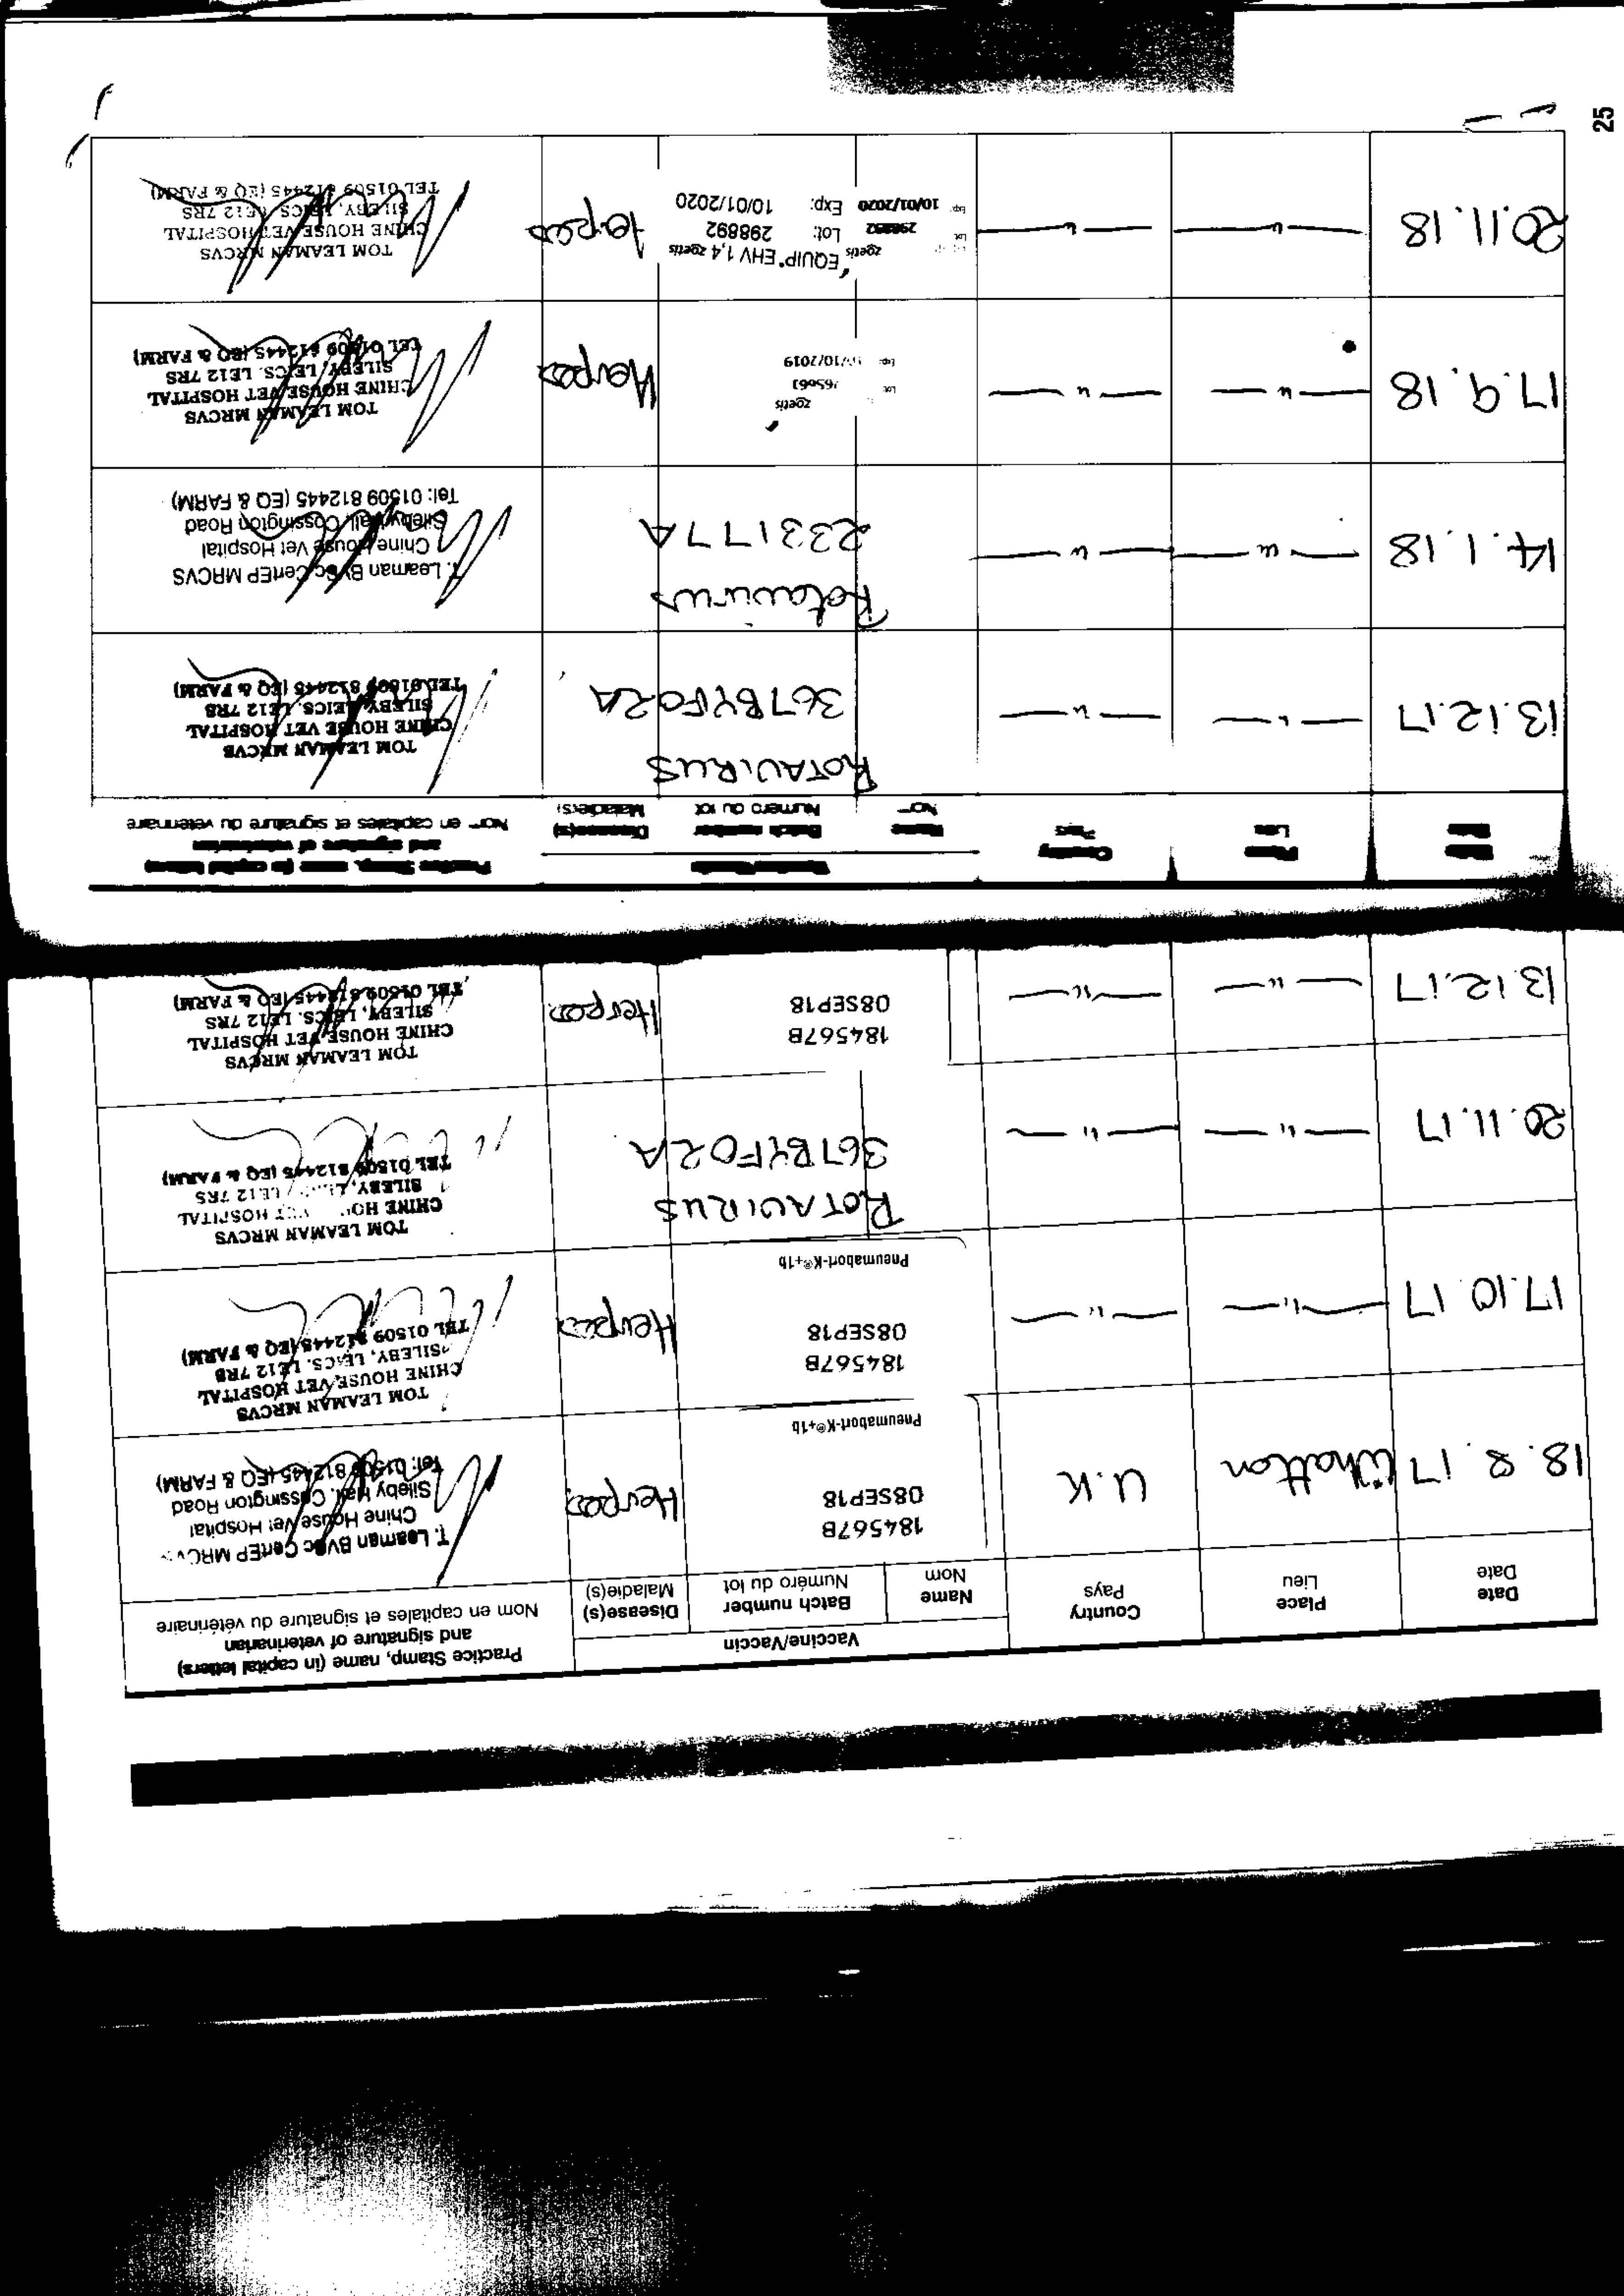 Date Place Country Vaccine/Vaccin Practice Stamp, name (in capital letters)
and signature of veterinarian
Date Lieu Pays Name Batch number Disease(s) Nom en capitales et signature du vétérinaire
Nom Numéro du lot Maladie(s)
18.8.17 Whatton U.K
184567B
08SEP18
Pneumabort-K®+1b
Herpes
T. Leaman BVSc CertEP MRCVS
Chine House Vet Hospital
Sileby Hall, Cossington Road
Tel: 01509 812445 (EQ & FARM)
17.10.17 — " — — " —
184567B
08SEP18
Pneumabort-K®+1b
Herpes
TOM LEAMAN MRCVS
CHINE HOUSE VET HOSPITAL
SILEBY, LEICS. LE12 7RS
TEL 01509 812445 (EQ & FARM)
20.11.17 — " — — " —
ROTAVIRUS
367BYF02A
TOM LEAMAN MRCVS
CHINE HOUSE VET HOSPITAL
SILEBY, LEICS. LE12 7RS
TEL 01509 812445 (EQ & FARM)
13.12.17 — " — — " —
184567B
08SEP18
Herpes
TOM LEAMAN MRCVS
CHINE HOUSE VET HOSPITAL
SILEBY, LEICS. LE12 7RS
TEL 01509 812445 (EQ & FARM)
Date Place Country Vaccine/Vaccin Practice Stamp, name (in capital letters)
and signature of veterinarian
Date Lieu Pays Name Batch number Disease(s) Nom en capitales et signature du vétérinaire
Nom Numéro du lot Maladie(s)
13.12.17 — " — — " —
ROTAVIRUS
367BYF02A
TOM LEAMAN MRCVS
CHINE HOUSE VET HOSPITAL
SILEBY, LEICS. LE12 7RS
TEL 01509 812445 (EQ & FARM)
14.1.18 — " — — " —
Rotavirus
233177A
T. Leaman BVSc CertEP MRCVS
Chine House Vet Hospital
Sileby Hall, Cossington Road
Tel: 01509 812445 (EQ & FARM)
17.9.18 — " — — " —
zoetis
Lot
Exp: 10/2019
Herpes
TOM LEAMAN MRCVS
CHINE HOUSE VET HOSPITAL
SILEBY, LEICS. LE12 7RS
TEL 01509 812445 (EQ & FARM)
20.11.18 — " — — " —
zoetis EQUIP® EHV 1,4 zoetis
Lot 298892 Lot: 298892
Exp 10/01/2020 Exp: 10/01/2020
Herpes
TOM LEAMAN MRCVS
CHINE HOUSE VET HOSPITAL
SILEBY, LEICS. LE12 7RS
TEL 01509 812445 (EQ & FARM)
25